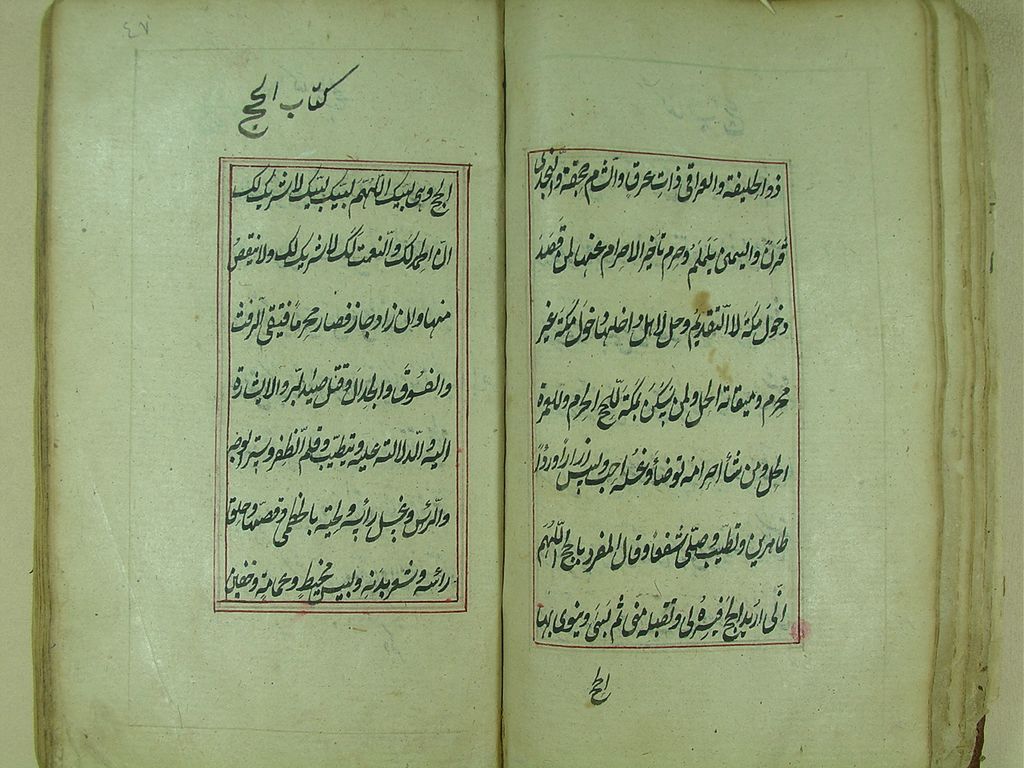 ذو الحليفة والعراقى ذات عرق والشام جحفة والنجدى
قرن واليمن يلملم وحرم تاخير الاحرام عنها لمن قصد
دخول مكة لا التقديم وحل لاهل داخلها دخول مكة غير
محرم وميقاته الحل ولمن يسكن بمكة للحج الحرم وللعمرة
الحل ومن شأ احرامه توضأ وغسله احب ولبس ازارا ورداً
طاهرين وتطيب وصلى شفعا وقال المفرد بالحج اللهم
انى اريد الحج فيسره لى وتقبله منى ثم لبى وينوى بها
الحج
٤٧
كتاب الحج
الحج وهى لبيك اللهم لبيك لبيك لا شريك لك
ان الحمد لك والنعمت لك لا شريك لك ولا ينقص
منها وان زاد جاز فصار محرما فيتقى الرفث
والفسوق والجدال وقتل صيد البر والاشارة
اليه والدلالته عليه وتطيب وقلم الظفر وستر الوجه
والرئس وغسل رأسه ولحيته بالخطمى وقصها وحلق
رائسه وشعر بدنه ولبس مخيط وعمامة وخفين